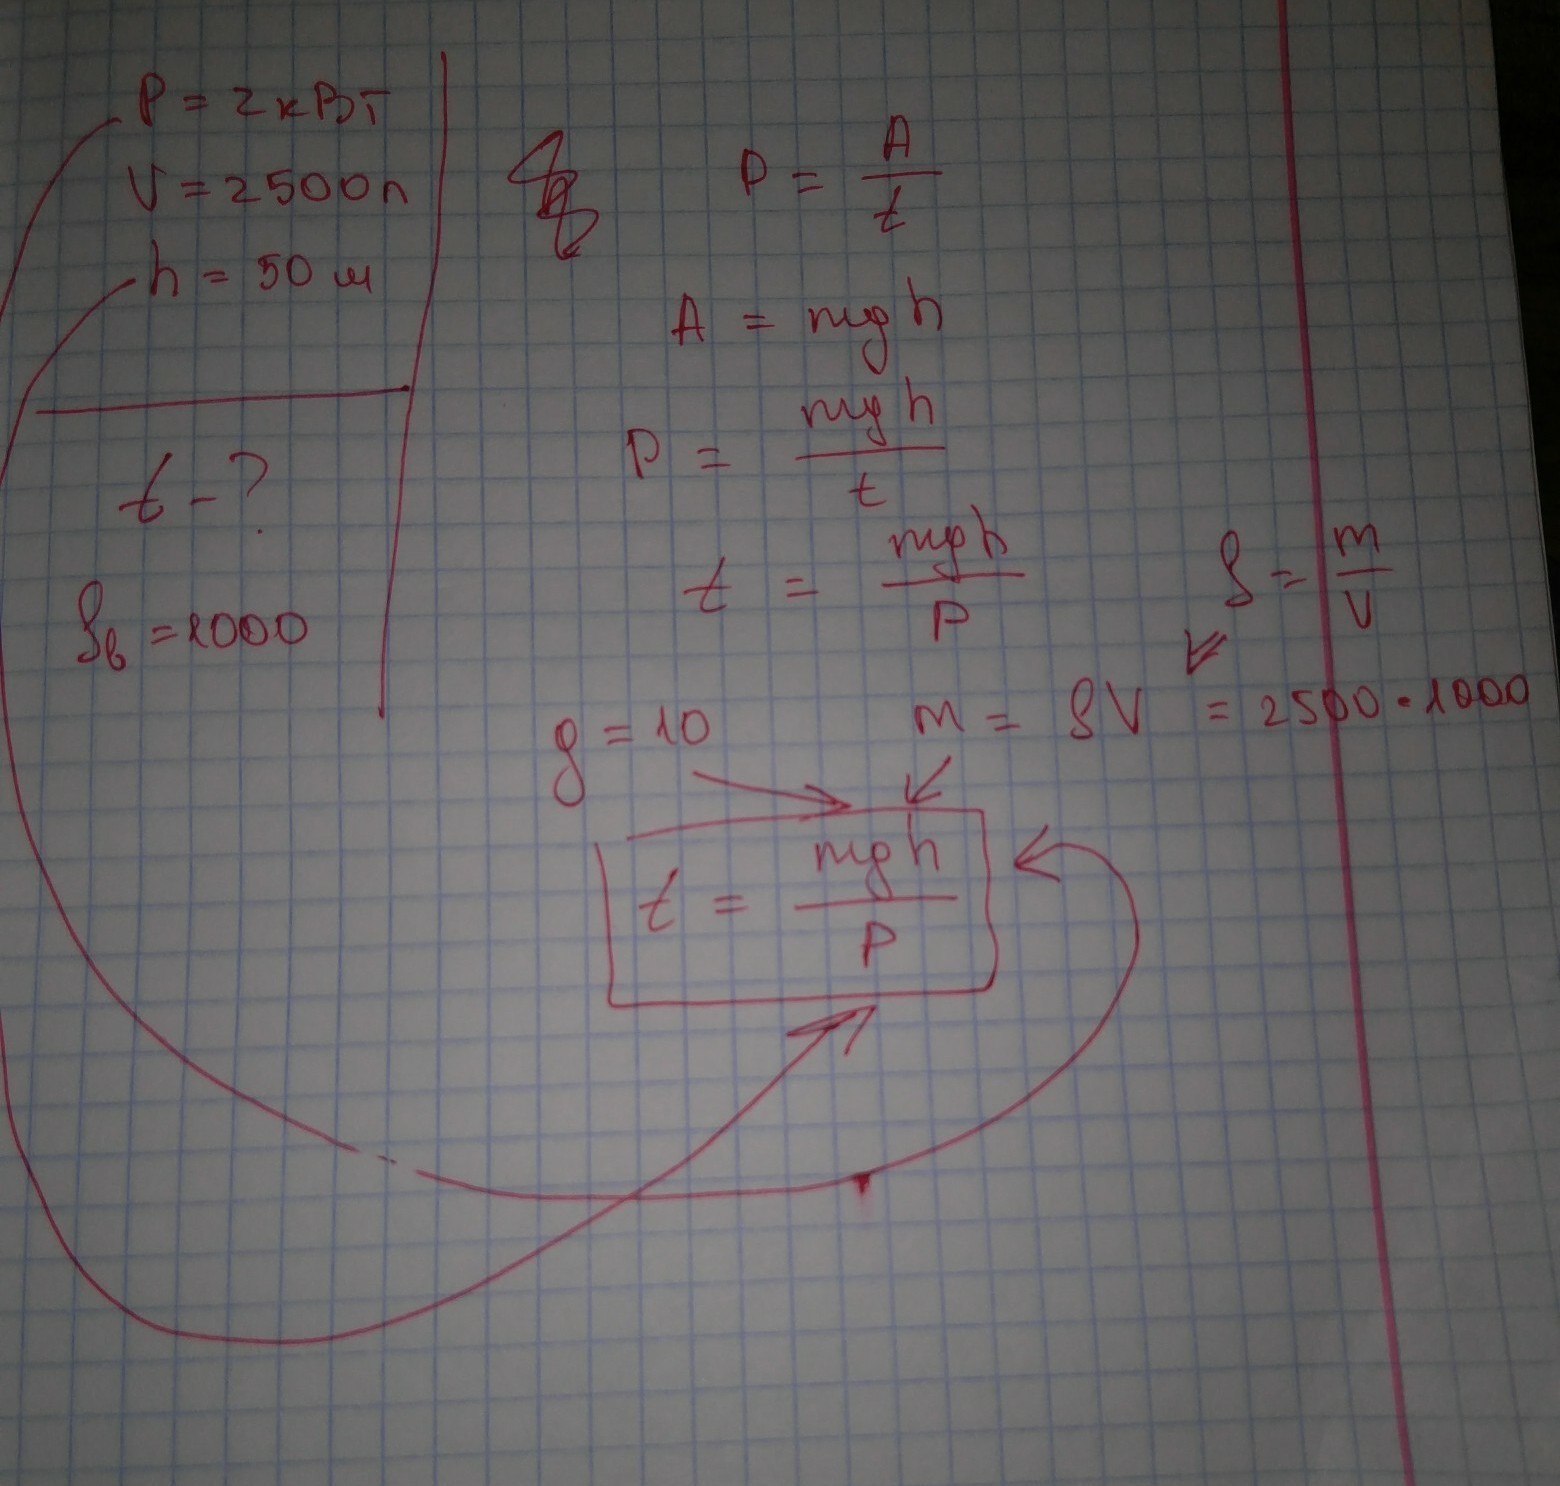 P = 2кВт
V = 2500л
h = 50 м
t - ?
ρв = 1000
P = A/t
A = mgh
P = mgh/t
t = mgh/P
ρ = m/V
g = 10
m = ρV = 2500·1000
t = mgh/P